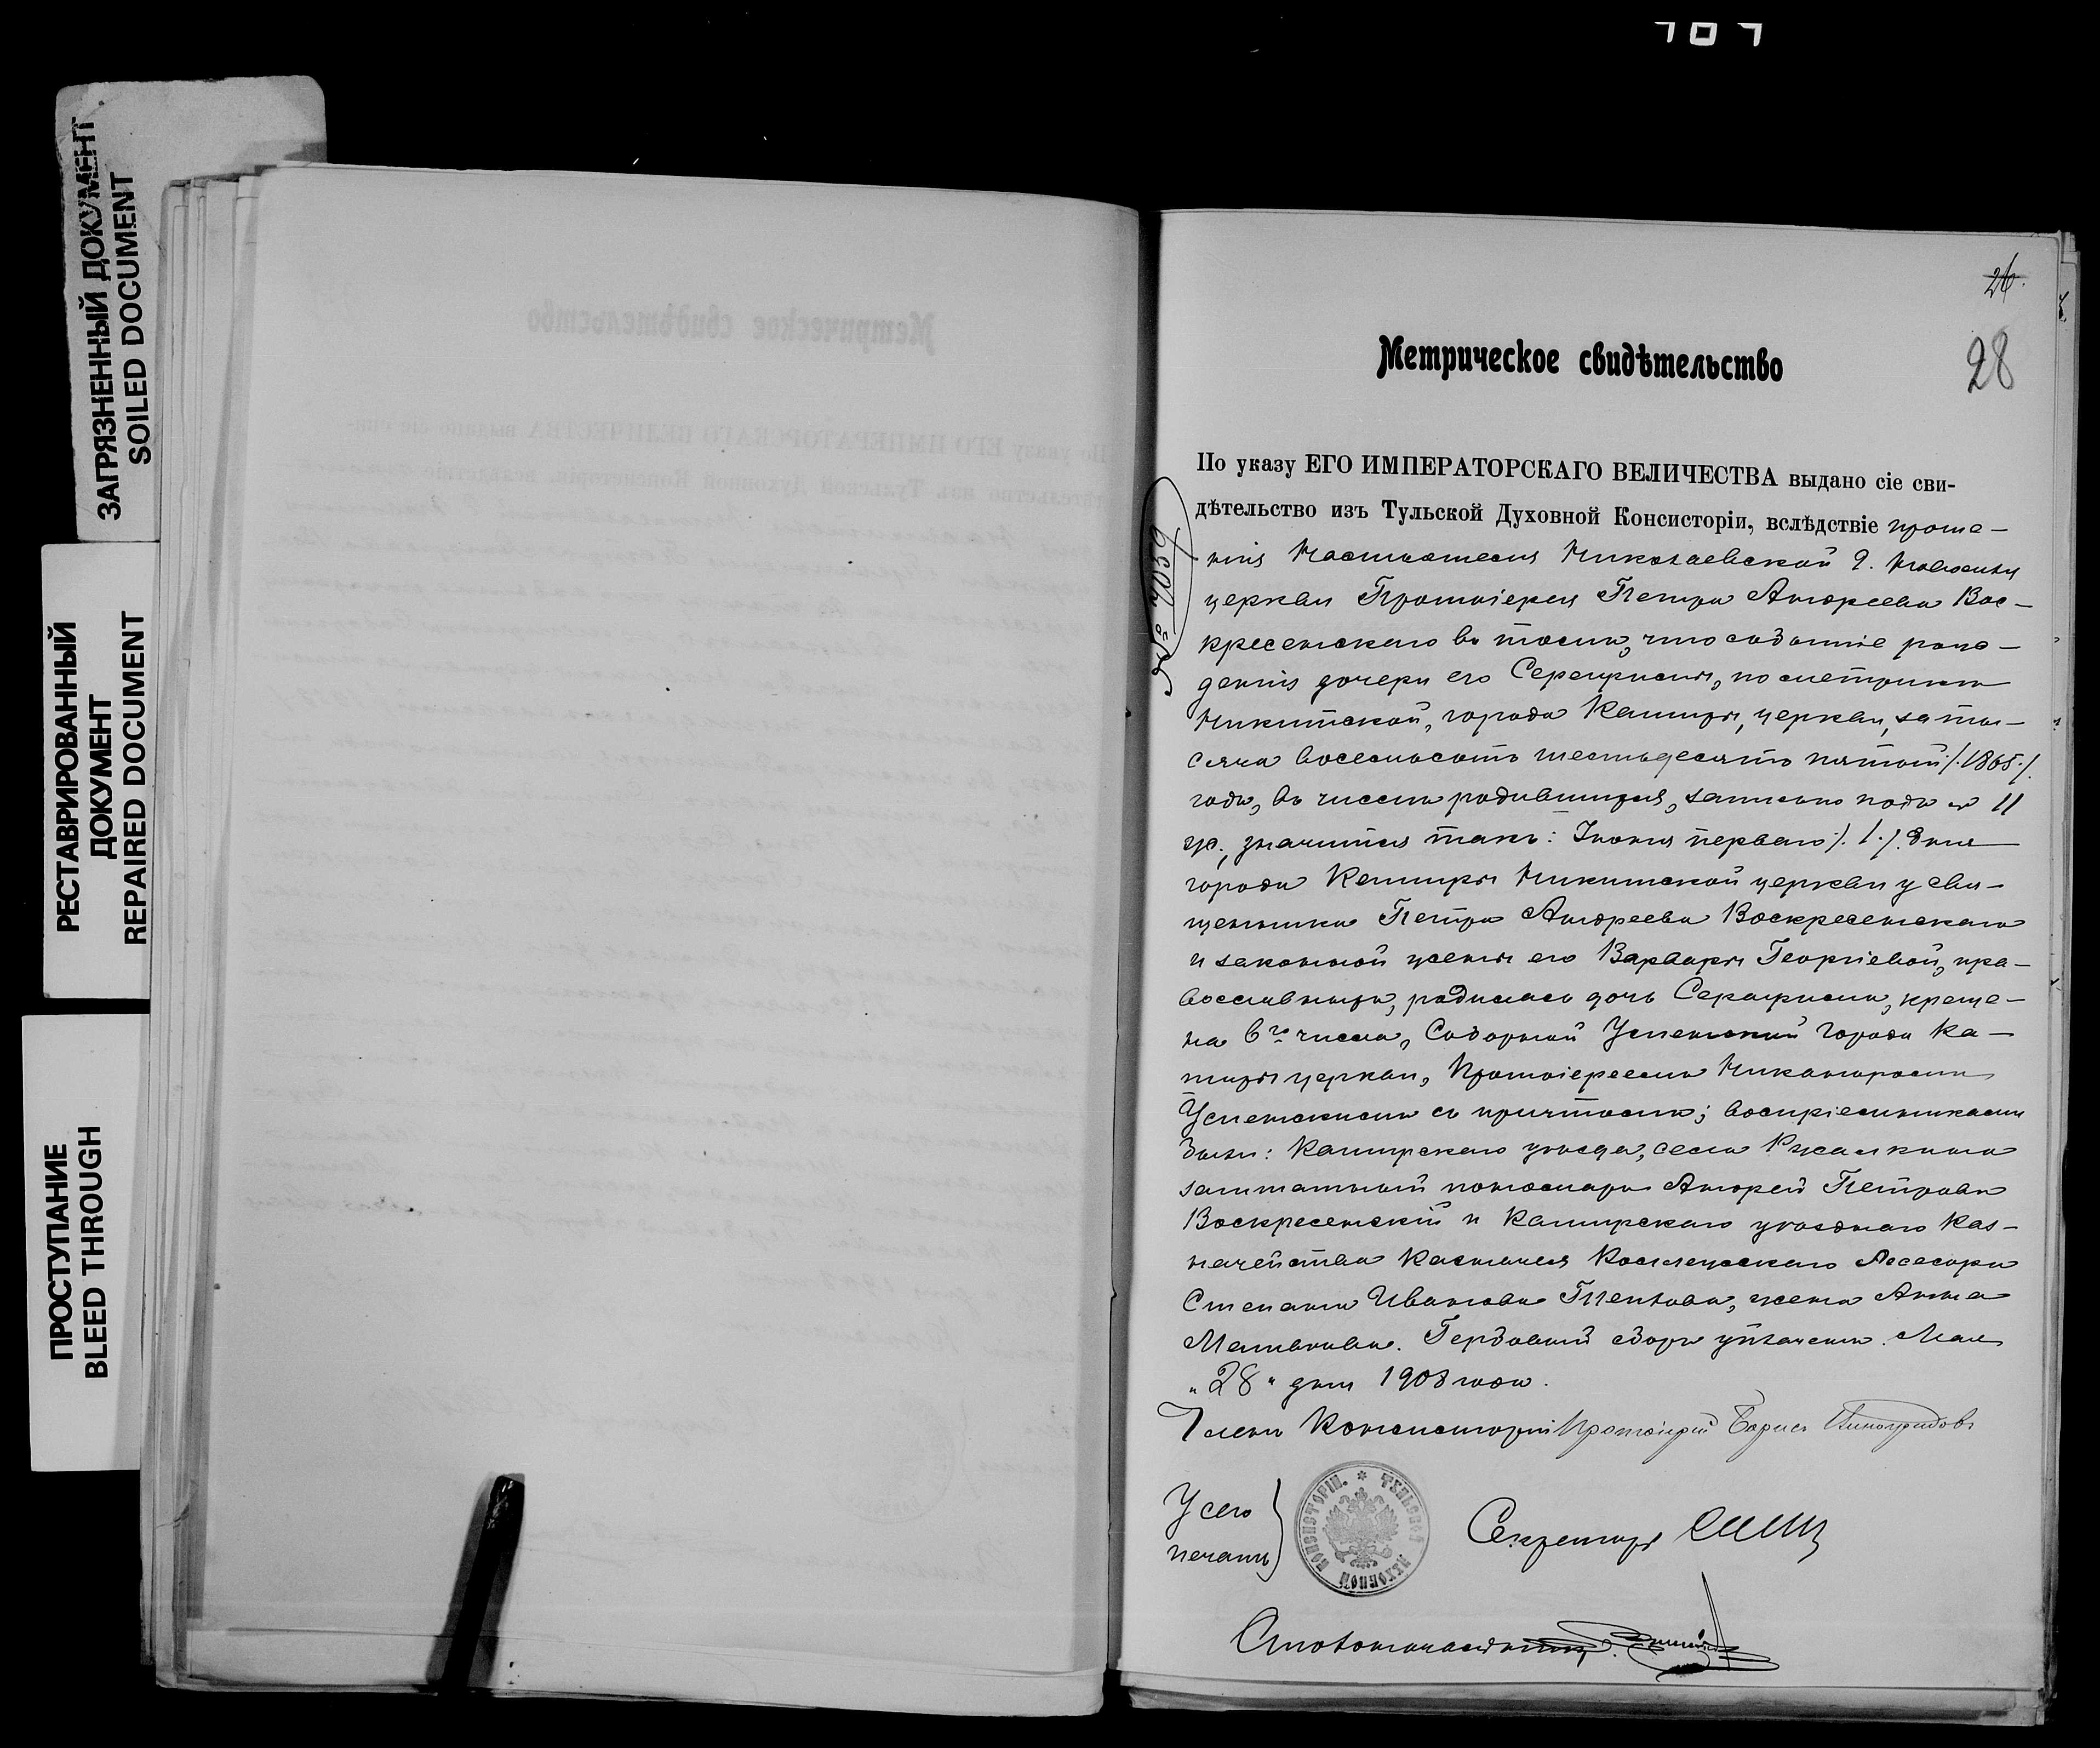 ЗАГРЯЗНЕННЫЙ ДОКУМЕНТ
SOILED DOCUMENT
РЕСТАВРИРОВАННЫЙ
ДОКУМЕНТ
REPAIRED DOCUMENT
ПРОСТУПАНИЕ
BLEED THROUGH
28
Метрическое свидѣтельство
По указу ЕГО ИМПЕРАТОРСКАГО ВЕЛИЧЕСТВА выдано сіе сви-
дѣтельство изъ Тульской Духовной Консисторіи, вслѣдствіе проше-
нія Настоятеля Николаевской г.
церкви Протоіерея Петра Андреева Вос-
кресенскаго въ томъ, что событіе рож-
денія дочери его Серафимы, по метрикѣ
Никитской, города Каширы, церкви, за ты-
сяча восемьсотъ шестьдесятъ пятый /.1865./
годъ, въ числѣ родившихся, записано подъ № 11
жр., значится такъ: Іюня перваго /.1./ дня
города Каширы Никитской церкви у свя-
щенника Петра Андреева Воскресенскаго
и законной жены его Варвары Георгіевой, пра-
вославныхъ, родилась дочь Серафима, креще-
на 6го числа, Соборной Успенской города Ка-
ширы церкви, Протоіереемъ Никаноромъ
Успенскимъ съ причтомъ; воспріемниками
были: Каширскаго уѣзда, села
заштатный пономарь Андрей Петровъ
Воскресенскій и Каширскаго уѣзднаго Каз-
начейства Казначея Коллежскаго Ассесора
Степана Иванова жена Анна
Матвѣева. Гербовый сборъ уплаченъ. Мая
„28“ дня 1908 года.
Членъ Консисторіи Протоіерей Борисъ Виноградовъ
У сего
печать
ТУЛЬСКОЙ ДУХОВНОЙ КОНСИСТОРІИ.
Секретарь
Столоначальникъ